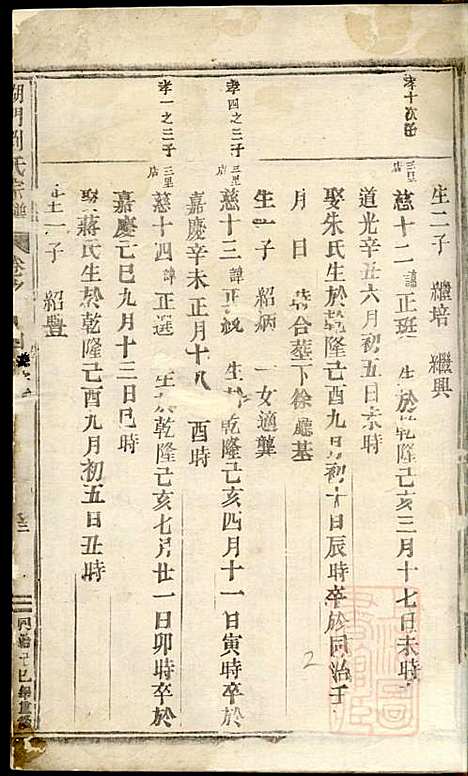 生二子 繼培 繼興
孝十次子
三里店 慈十二 諱正班 生於乾隆己亥三月十七日未時
道光辛丑六月初五日未時
娶朱氏生於乾隆己酉九月初十日辰時卒於同治壬
月 日 合葬下徐廳基
生一子 紹炳 一女適龔
孝四之三子
三里店 慈十三 諱正 生於乾隆己亥四月十一日寅時卒於
嘉慶辛未正月十八 酉時
孝一之三子
三里店 慈十四 諱正選 生於乾隆己亥七月廿一日卯時卒於
嘉慶己巳九月十三日巳時
娶蔣氏生於乾隆己酉九月初五日丑時
生一子 紹豐
門劉氏宗譜 卷之
同治己巳年重
2